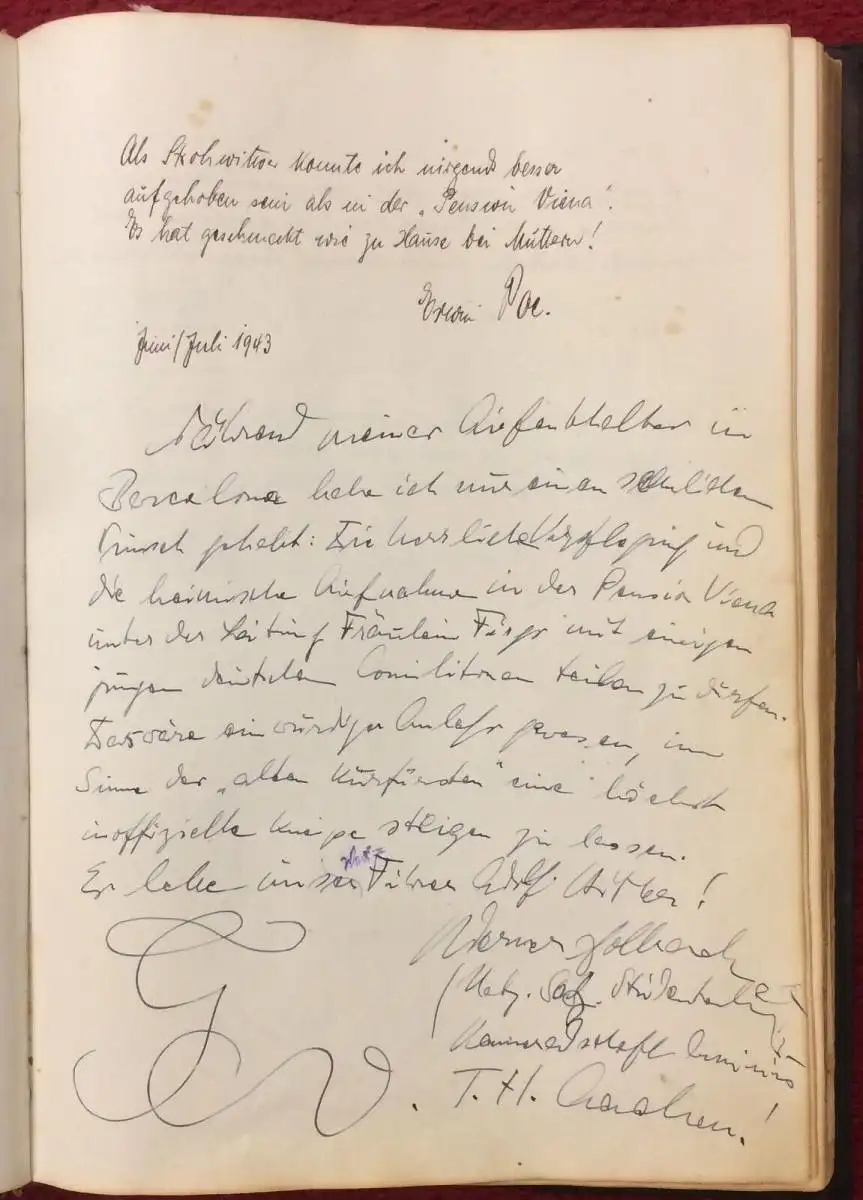 Als Strohwitwer konnte ich nirgends besser
aufgehoben sein als in der „Pension Viena“.
Es hat geschmeckt wie zu Hause bei Muttern!
Erwin Poe.
Juni/Juli 1943
Während meines Aufenthaltes in
Barcelona habe ich nur einen
Wunsch gehabt: Die herrliche Verpflegung und
die heimische Aufnahme in der Pension Viena
unter der Leitung Fräulein mit einigen
jungen deutschen Comilitonen teilen zu dürfen.
Das wäre ein würdiger Anlass gewesen, im
Sinne der „alten Kurfürsten“ eine höchst
inoffizielle Kneipe steigen zu lassen.
Es lebe unser Führer Adolf Hitler!
Werner
Kameradschaft
T. H. Aachen!